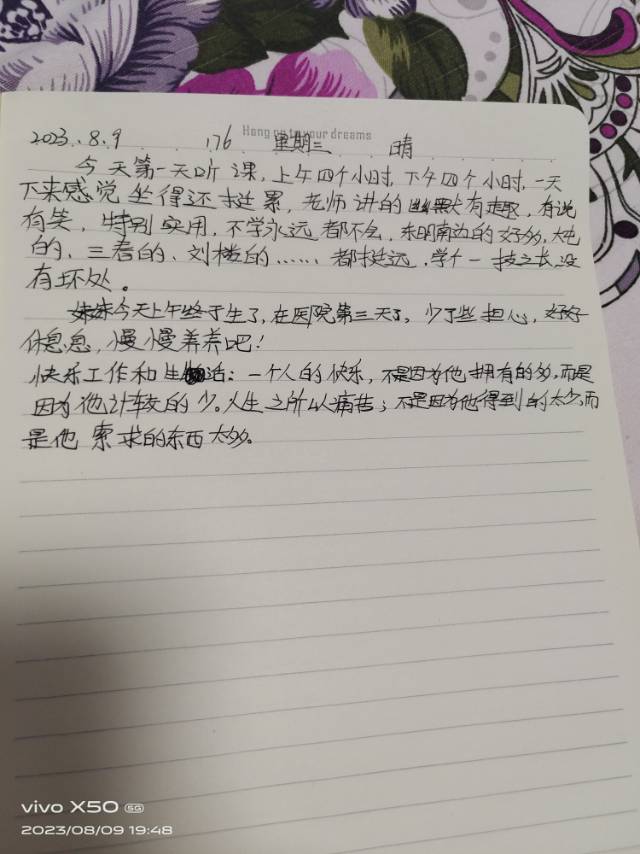 Hang on to your dreams
2023.8.9 176 星期三 晴
今天第一天听课,上午四个小时,下午四个小时,一天
下来感觉坐得还挺累,老师讲的幽默有趣,有说
有笑,特别实用,不学永远都不会,东明南边的好多,大屯
的、三春的、刘楼的……都挺远,学个一技之长没
有坏处。
妹妹今天上午终于生了,在医院第三天了,少了些担心,好好
休息息,慢慢养养吧!
快乐工作和生活:一个人的快乐,不是因为他拥有的多,而是
因为他计较的少。人生之所以痛苦;不是因为他得到的太少,而
是他索求的东西太多。
vivo X50 5G
2023/08/09 19:48